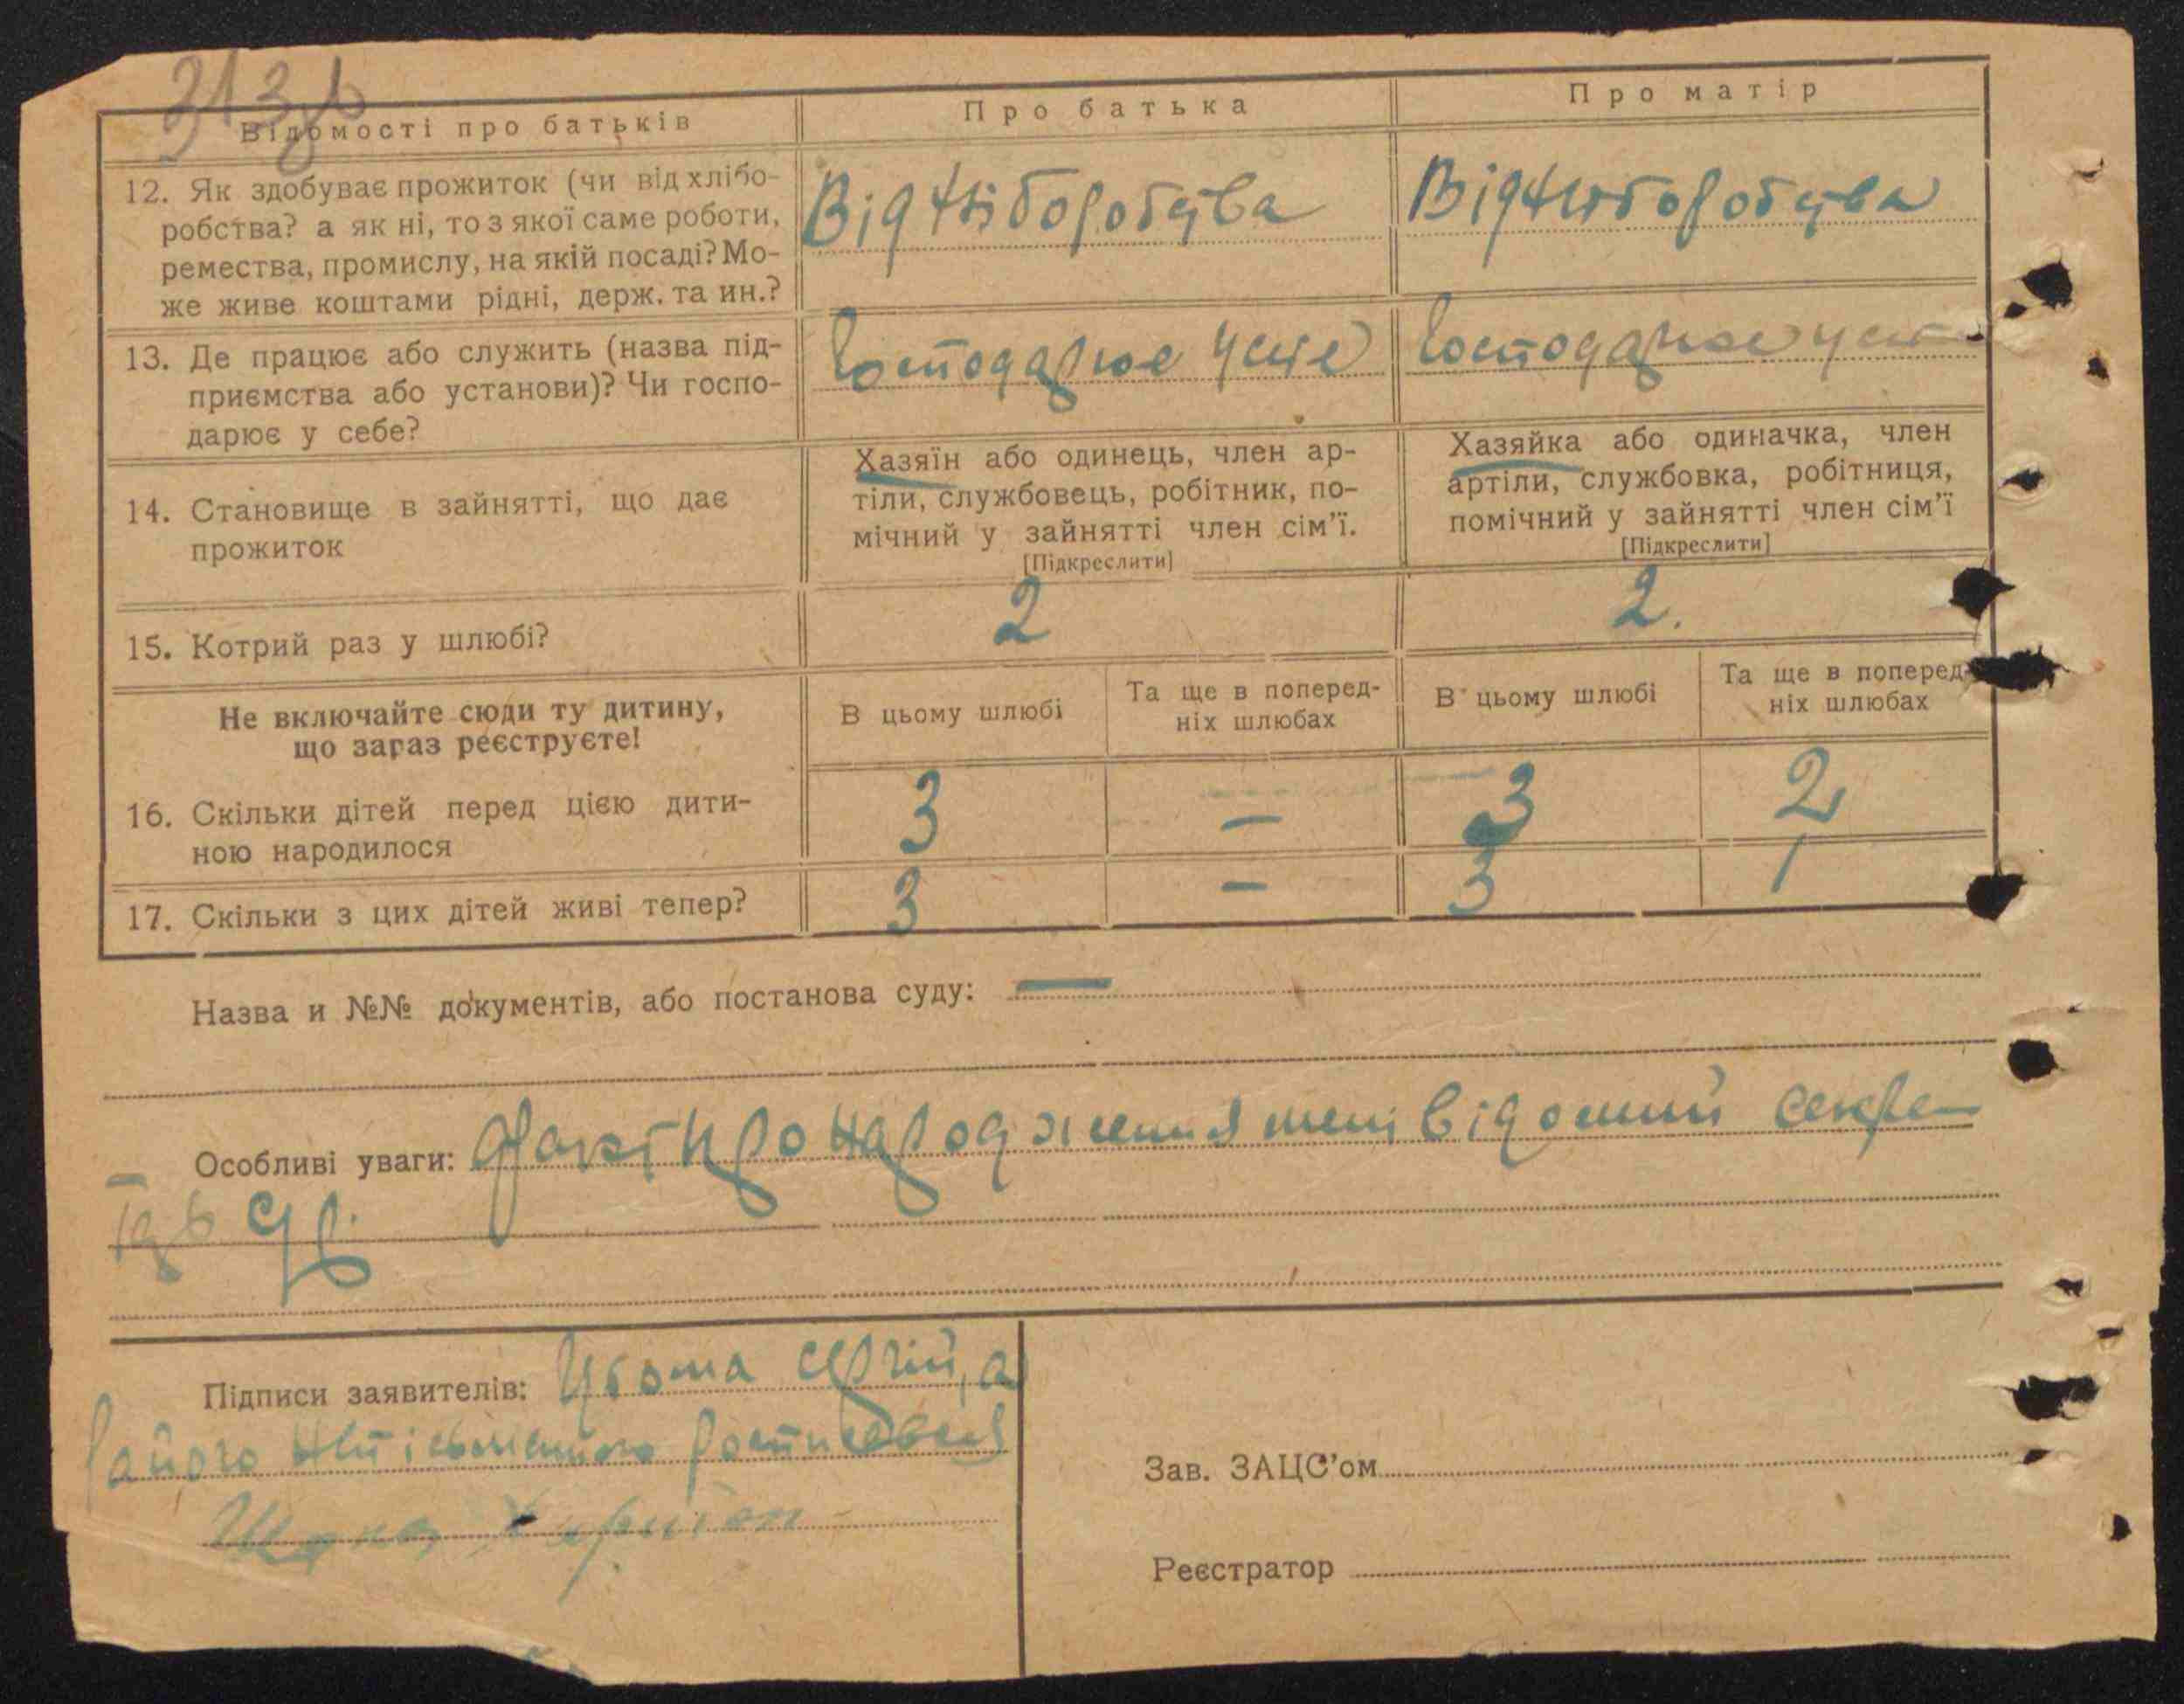 313
Відомості про батьків
Про батька
Про матір
12. Як здобуває прожиток (чи від хлібо-
робства? а як ні, то з якої саме роботи,
ремества, промислу, на якій посаді? Мо-
же живе коштами рідні, держ. та ин.?
Від хліборобства
Від хліборобства
13. Де працює або служить (назва під-
приємства або установи)? Чи госпо-
дарює у себе?
Господарює
Господарює
14. Становище в зайнятті, що дає
прожиток
Хазяїн або одинець, член ар-
тіли, службовець, робітник, по-
мічний у зайнятті член сім’ї.
[Підкреслити]
Хазяйка або одиначка, член
артіли, службовка, робітниця,
помічний у зайнятті член сім’ї
[Підкреслити]
15. Котрий раз у шлюбі?
2
2.
Не включайте сюди ту дитину,
що зараз реєструєте!
В цьому шлюбі
Та ще в поперед-
ніх шлюбах
В цьому шлюбі
Та ще в поперед-
ніх шлюбах
16. Скільки дітей перед цією дити-
ною народилося
3
—
3
2
17. Скільки з цих дітей живі тепер?
3
—
3
1
Назва и №№ документів, або постанова суду: —
Особливі уваги: Факт про народження мені відомий секре-
Підписи заявителів: Сергій, а
Зав. ЗАЦС’ом
Реєстратор